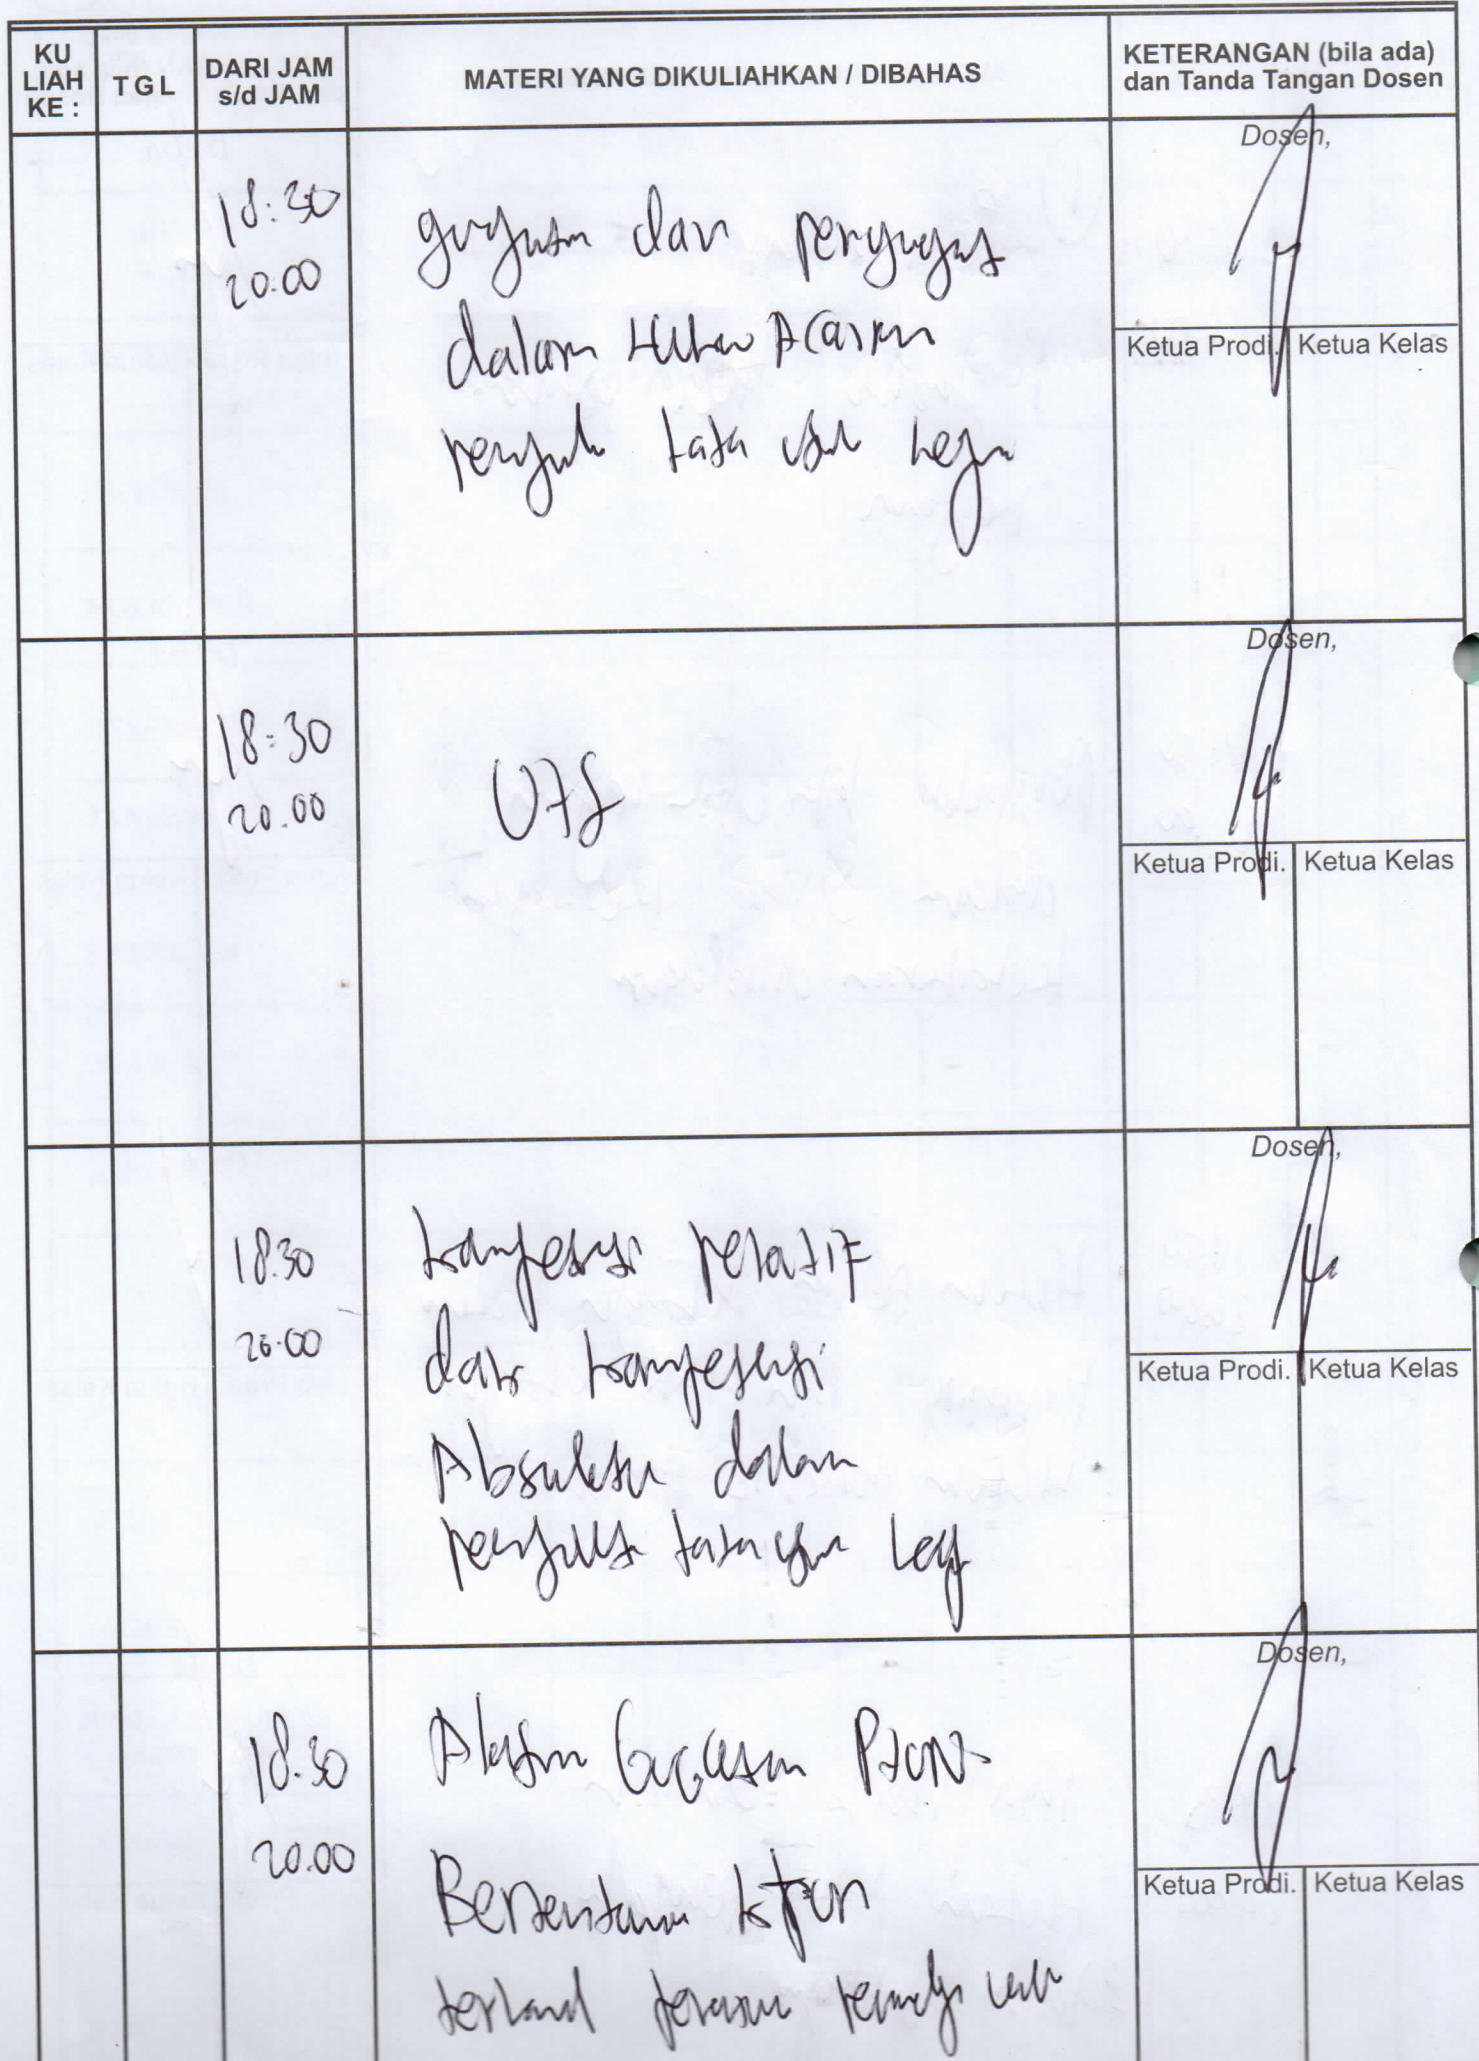 KU LIAH KE :
T G L
DARI JAM s/d JAM
MATERI YANG DIKULIAHKAN / DIBAHAS
KETERANGAN (bila ada) dan Tanda Tangan Dosen
18:30
20.00
gugatan dan penggugat
dalam Hukum Acara
tata usaha negara
Dosen,
Ketua Prodi. Ketua Kelas
18:30
20.00
UTS
Dosen,
Ketua Prodi. Ketua Kelas
18.30
20.00
kompetensi relatif
dan kompetensi
Absolut dalam
tata usaha
Dosen,
Ketua Prodi. Ketua Kelas
18.30
20.00
Alasan Gugatan PTUN
Bertentangan
Dosen,
Ketua Prodi. Ketua Kelas